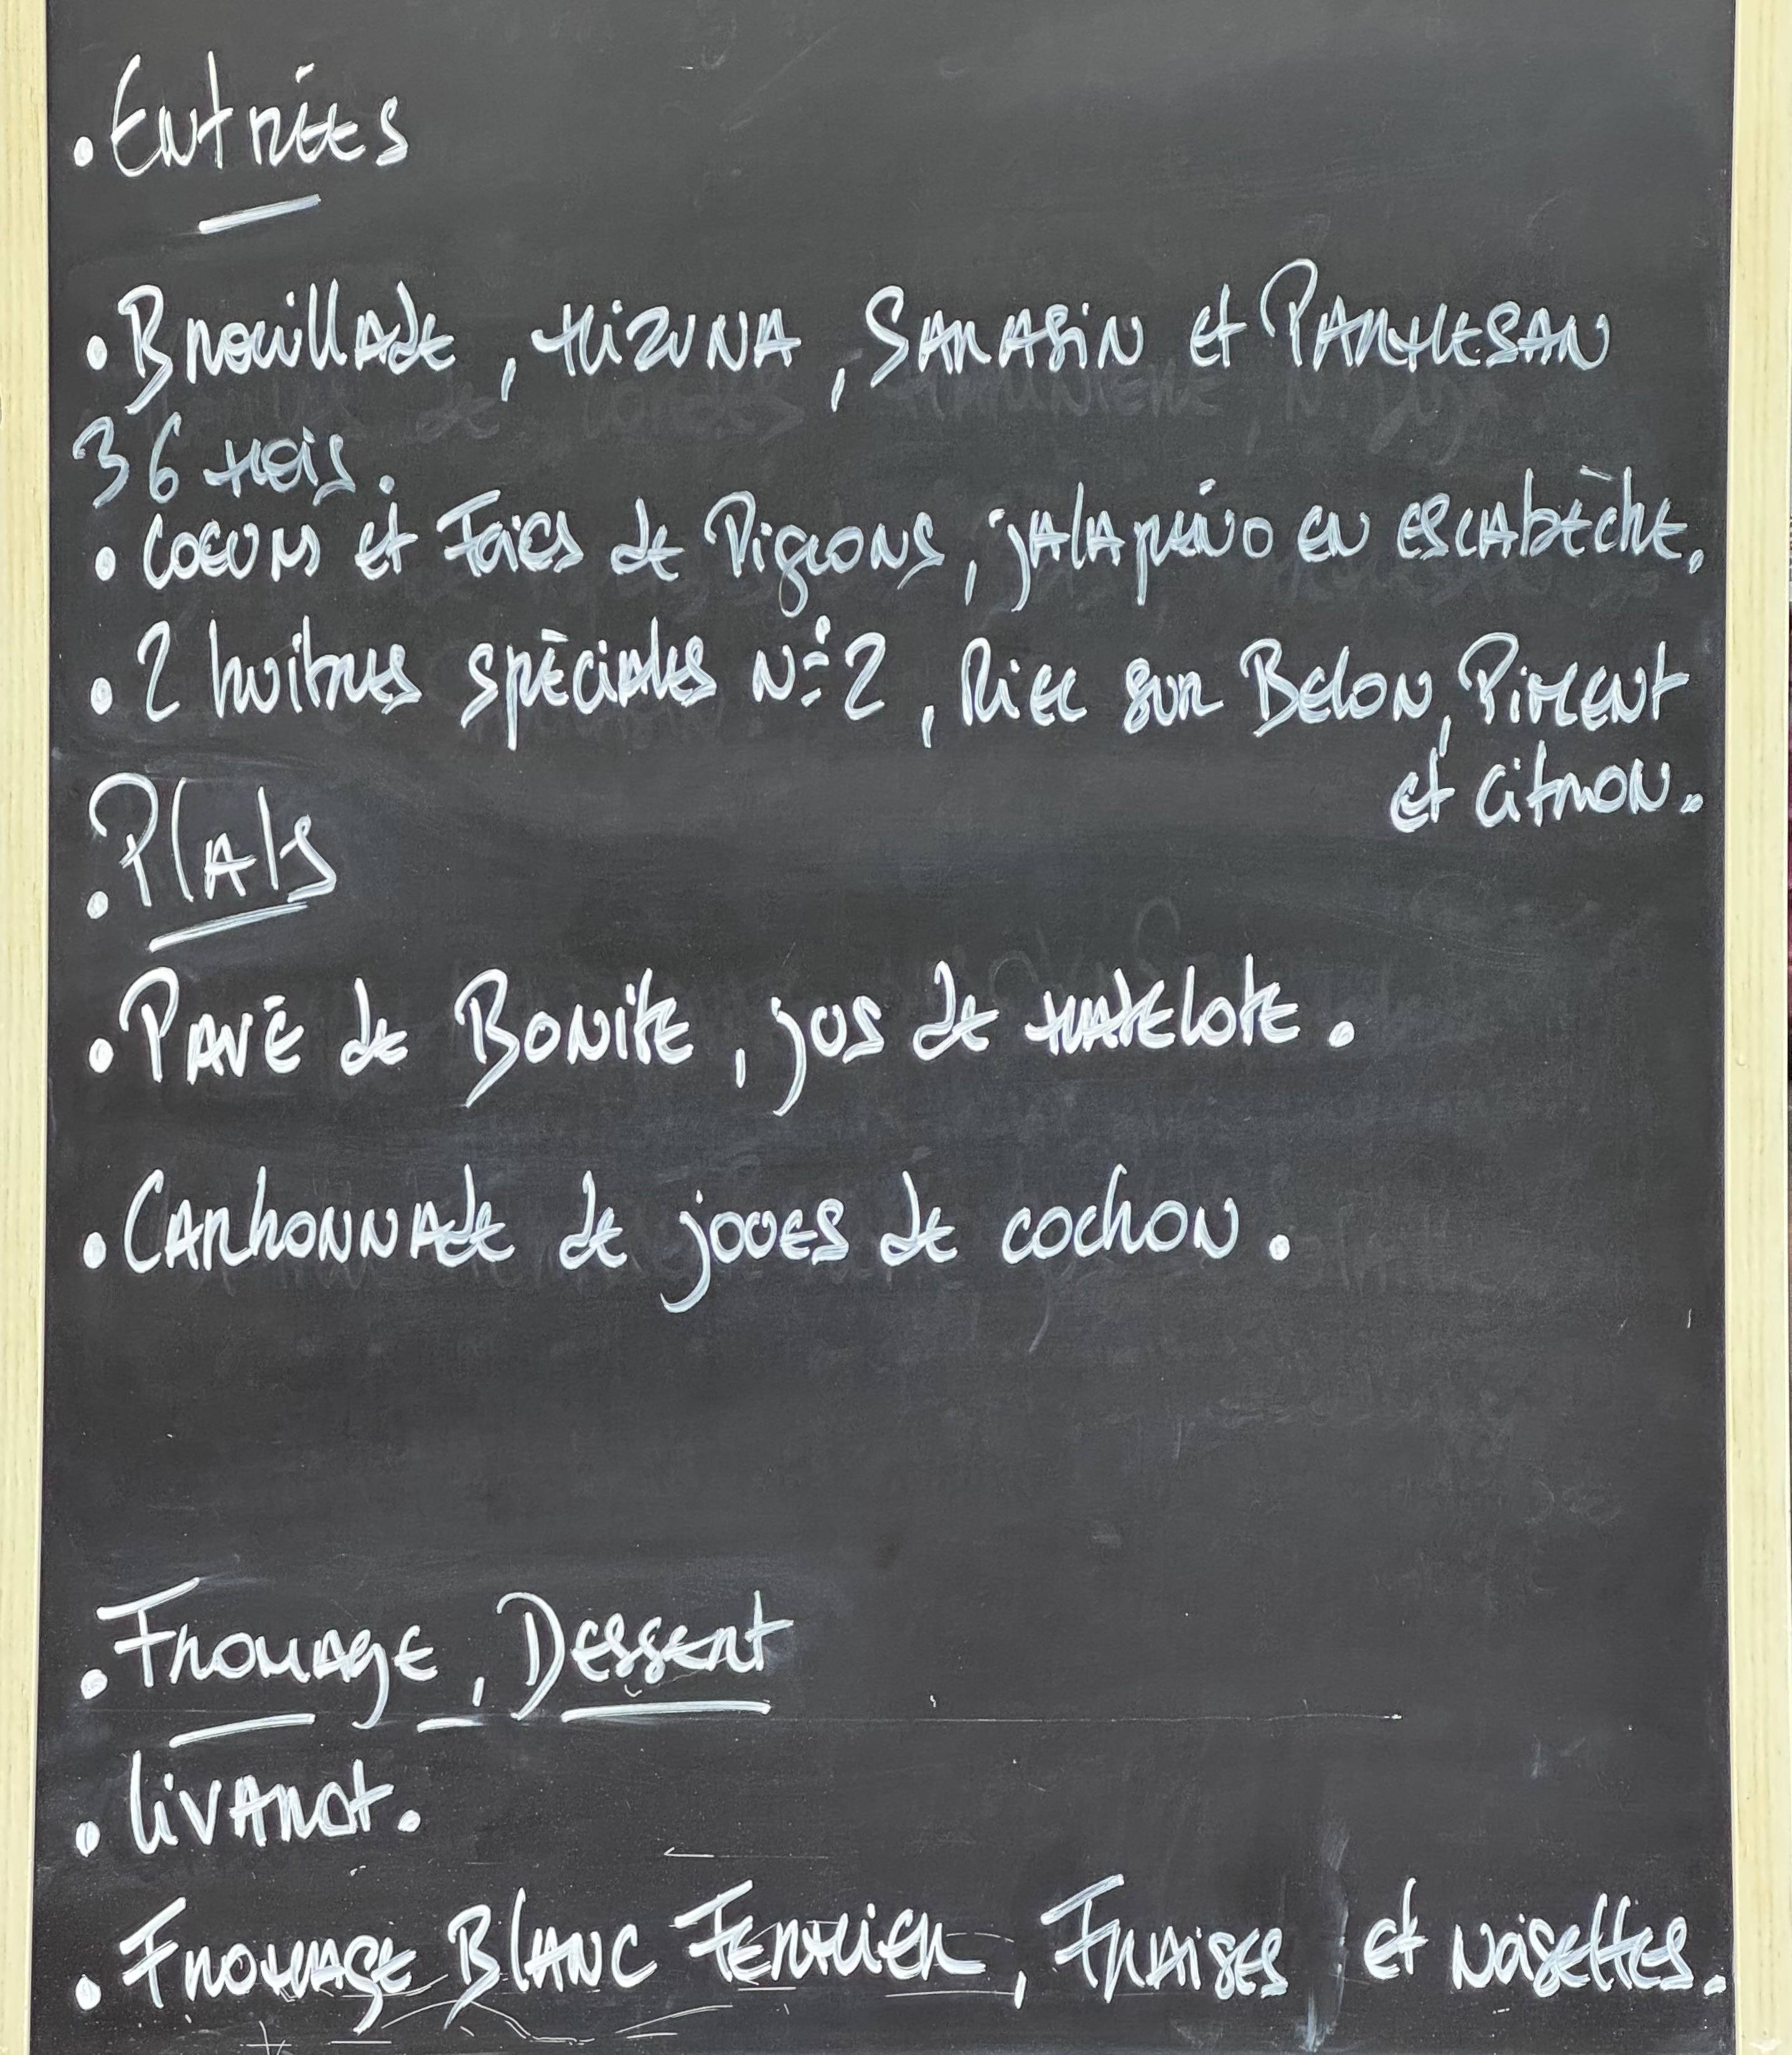 . Entrées
• Brouillade, Mizuna, Sarasin et Parmesan
36 mois.
• Coeurs et Foies de Pigeons, jalapeño en escabèche.
• 2 huitres spéciales N°2, Riec sur Belon, Piment
et citron.
. Plats
• Pavé de Bonite, jus de matelote.
• Carbonnade de joues de cochon.
. Fromage, Dessert
• Livarot.
• Fromage Blanc Fermier, Fraises et noisettes.